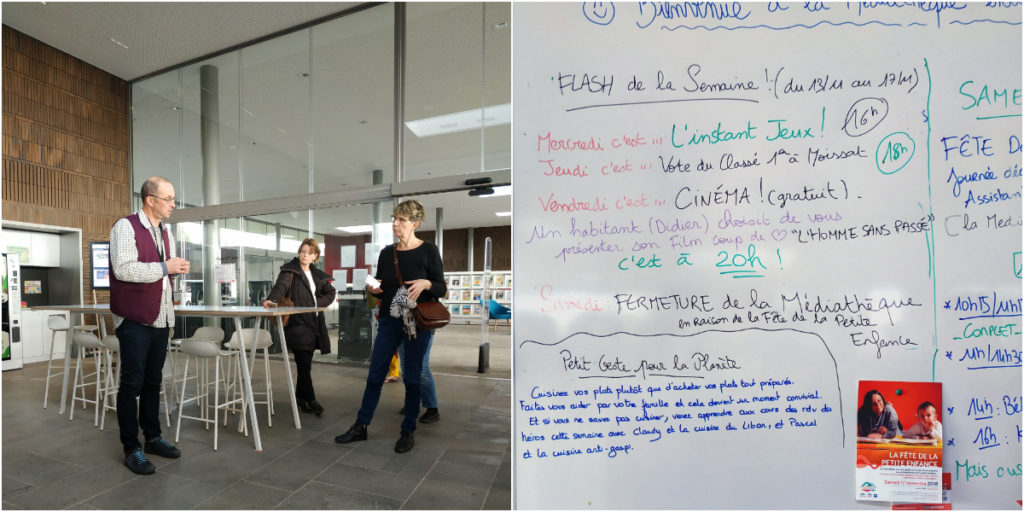 Bienvenue à la Médiathèque
FLASH de la Semaine ! (du 13/11 au 17/11)
Mercredi c'est ... L'instant Jeux ! 16h
Jeudi c'est ... Vote du Classé 1er à Moissat 18h
Vendredi c'est ... CINÉMA ! (gratuit).
Un habitant (Didier) choisit de vous
présenter son Film coup de ♡ "L'HOMME SANS PASSÉ"
c'est à 20h !
Samedi : FERMETURE de la Médiathèque
en raison de la Fête de la Petite
Enfance
Petit Geste pour la Planète
Cuisinez vos plats plutôt que d'acheter vos plats tout préparés.
Faites vous aider par votre famille et cela devient un moment convivial.
Et si vous ne savez pas cuisiner, venez apprendre aux cours des rdv du
héros cette semaine avec Claudy et la cuisine du Liban, et Pascal
et la cuisine anti-gasp.
SAME
FÊTE D
Journée dé
Assistan
(la Médi
*10h15/11h1
-COMPLET-
* 11h/11h30
* 14h : Bé
* 16h : K
Mais aus
LA FÊTE DE LA
PETITE ENFANCE
Samedi 17 novembre 2018